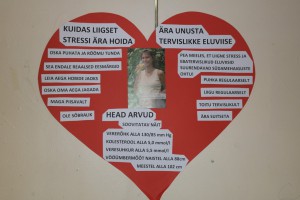 KUIDAS LIIGSET
STRESSI ÄRA HOIDA
OSKA PUHATA JA RÕÕMU TUNDA
SEA ENDALE REAALSED EESMÄRGID
LEIA AEGA HOBIDE JAOKS
OSKA OMA AEGA JAGADA
MAGA PIISAVALT
OLE SÕBRALIK
ÄRA UNUSTA
TERVISLIKKE ELUVIISE
PEA MEELES, ET LIIGNE STRESS JA
EBATERVISLIKUD ELUVIISID
SUURENDAVAD SÜDAMEHAIGUSTE
OHTU
PUHKA REGULAARSELT
LIIGU REGULAARSELT
TOITU TERVISLIKULT
ÄRA SUITSETA
HEAD ARVUD
SISUTATAU SÄIT
VERERÕHK ALLA 130/85 mm Hg
KOLESTEROOL ALLA 5,0 mmol/l
VERESUHKUR ALLA 5,5 mmol/l
VÖÖÜMBERMÕÕT NAISTEL ALLA 88cm
MEESTEL ALLA 102 cm